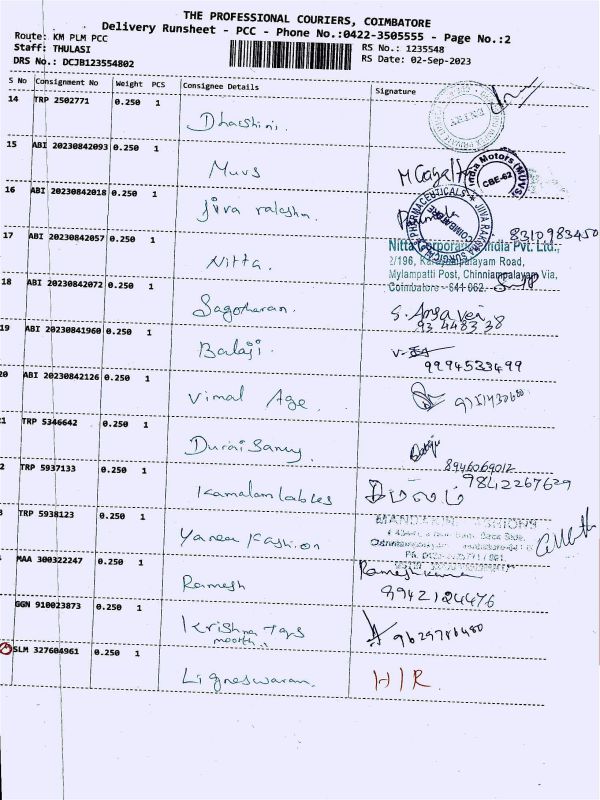 THE PROFESSIONAL COURIERS, COIMBATORE
Delivery Runsheet - PCC - Phone No.:0422-3505555 - Page No.:2
Route: KM PLM PCC
Staff: THULASI
DRS No.: DCJB123554802
RS No.: 1235548
RS Date: 02-Sep-2023
S No Consignment No Weight PCS Consignee Details Signature
14 TRP 2502771 0.250 1
Dharshini.
15 ABI 20230842093 0.250 1
Muvs
India Motors (MUVs)
CBE-62
16 ABI 20230842018 0.250 1
Jiva raksha
PHARMACEUTICALS
JIVA RAKSHA SURGICAL
COIMBATORE
8310983450
17 ABI 20230842057 0.250 1
Nitta.
Nitta Corporation India Pvt. Ltd.,
2/196, Palayam Road,
Mylampatti Post, Chinniampalayam Via,
Coimbatore - 641 062.
18 ABI 20230842072 0.250 1
Sagotharan.
93 448338
19 ABI 20230841960 0.250 1
Balaji.
9994533499
20 ABI 20230842126 0.250 1
Vimal Age.
21 TRP 5346642 0.250 1
Durai Samy.
8946069012
2 TRP 5937133 0.250 1
Kamalam Cables
9842267629
3 TRP 5938123 0.250 1
Fashion
FASHIONS
MAA 300322247 0.250 1
Ramesh
Ramesh Kumar
9942124476
GGN 910023873 0.250 1
Krishna Tags
moorthy
9629786480
SLM 327604961 0.250 1
Ligneswaran.
H/R.